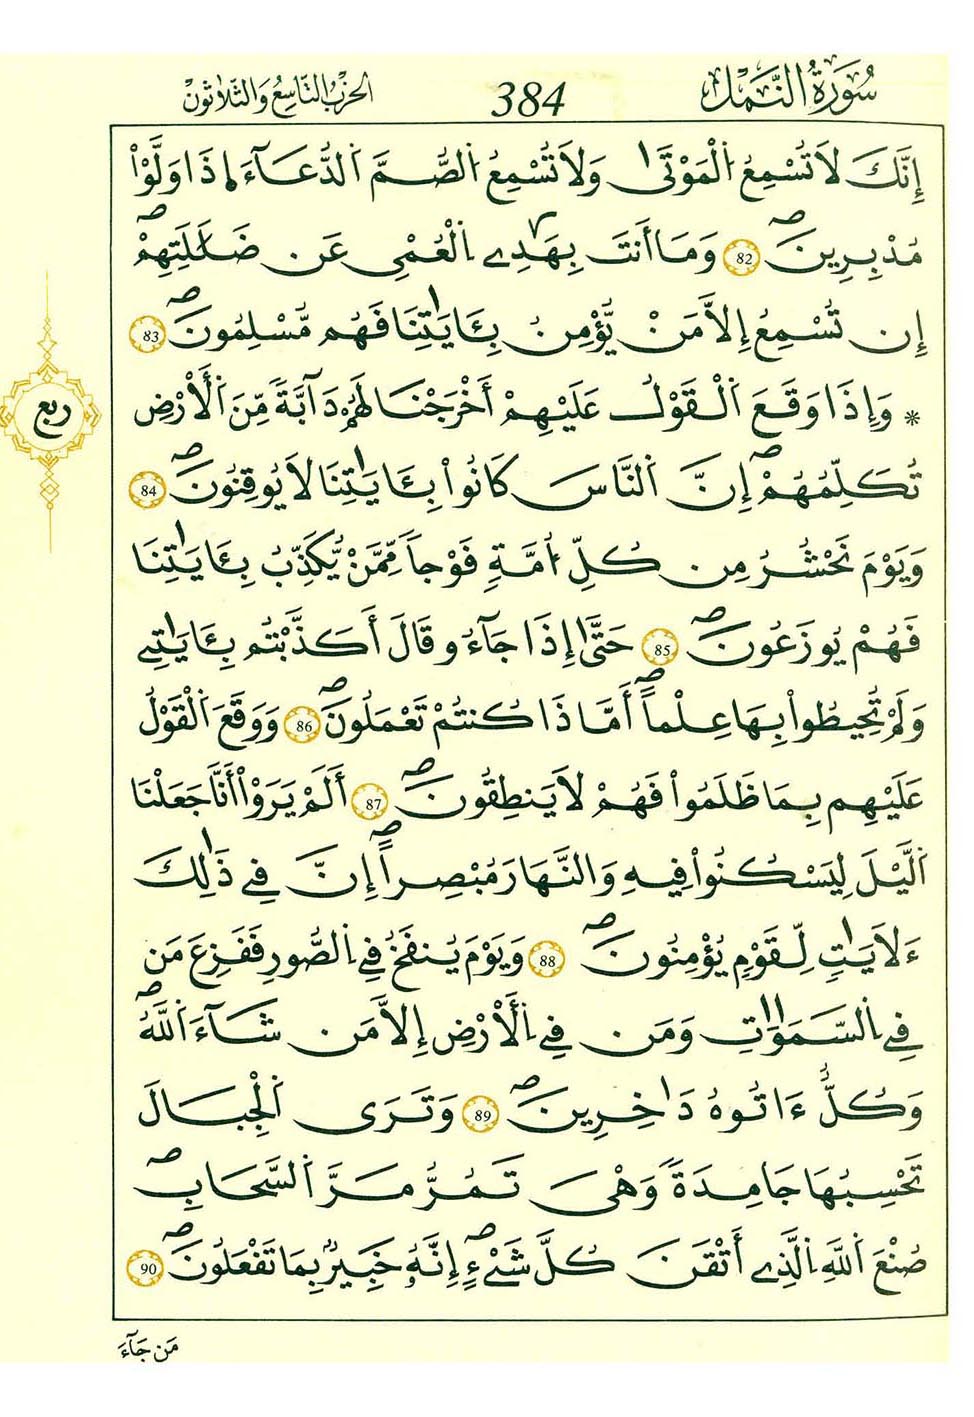 سُورَةُ النَّمْلِ
384
الحِزْبُ التَّاسِعُ وَالثَّلَاثُونَ
إِنَّكَ لَا تُسْمِعُ الْمَوْتَىٰ وَلَا تُسْمِعُ الصُّمَّ الدُّعَآءَ اِ۪ذَا وَلَّوْاْ
مُدْبِرِينَۖ 82 وَمَا أَنتَ بِهَٰدِے اِ۬لْعُمْيِ عَن ضَلَٰلَتِهِمْۖ
إِن تُسْمِعُ إِلَّا مَنْ يُّؤْمِنُ بِـَٔايَٰتِنَا فَهُم مُّسْلِمُونَۖ 83
* وَإِذَا وَقَعَ اَ۬لْقَوْلُ عَلَيْهِمْ أَخْرَجْنَا لَهُمْ دَآبَّةٗ مِّنَ اَ۬لْأَرْضِ
تُكَلِّمُهُمْۖ إِنَّ اَ۬لنَّاسَ كَانُواْ بِـَٔايَٰتِنَا لَا يُوقِنُونَۖ 84
وَيَوْمَ نَحْشُرُ مِن كُلِّ أُمَّةٖ فَوْجاٗ مِّمَّنْ يُّكَذِّبُ بِـَٔايَٰتِنَا
فَهُمْ يُوزَعُونَۖ 85 حَتَّىٰ إِذَا جَآءُو قَالَ أَكَذَّبْتُم بِـَٔايَٰتِے
وَلَمْ تُحِيطُواْ بِهَا عِلْماًۖ أَمَّا ذَا كُنتُمْ تَعْمَلُونَۖ 86 وَوَقَعَ اَ۬لْقَوْلُ
عَلَيْهِم بِمَا ظَلَمُواْ فَهُمْ لَا يَنطِقُونَۖ 87 أَلَمْ يَرَوْاْ أَنَّا جَعَلْنَا
اَ۬لَّيْلَ لِيَسْكُنُواْ فِيهِ وَالنَّهَارَ مُبْصِراًۖ إِنَّ فِے ذَٰلِكَ
ءَلَايَٰتٖ لِّقَوْمٖ يُؤْمِنُونَۖ 88 وَيَوْمَ يُنفَخُ فِے اِ۬لصُّورِ فَفَزِعَ مَن
فِے اِ۬لسَّمَٰوَٰتِ وَمَن فِے اِ۬لْأَرْضِ إِلَّا مَن شَآءَ اَ۬للَّهُۖ
وَكُلٌّ ءَاتُوهُ دَٰخِرِينَۖ 89 وَتَرَى اَ۬لْجِبَالَ
تَحْسِبُهَا جَامِدَةٗ وَهْيَ تَمُرُّ مَرَّ اَ۬لسَّحَابِۖ
صُنْعَ اَ۬للَّهِ اِ۬لَّذِے أَتْقَنَ كُلَّ شَےْءٍۖ إِنَّهُۥ خَبِيرُۢ بِمَا تَفْعَلُونَۖ 90
رُبع
مَن جَآءَ